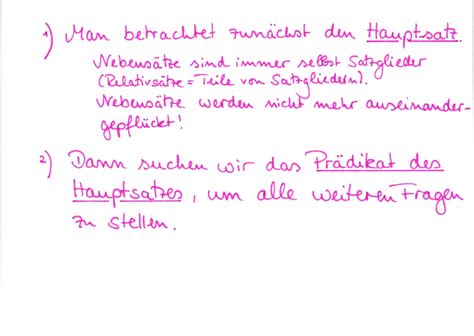 1) Man betrachtet zunächst den Hauptsatz.
Nebensätze sind immer selbst Satzglieder
(Relativsätze = Teile von Satzgliedern).
Nebensätze werden nicht mehr auseinander-
gepflückt!
2) Dann suchen wir das Prädikat des
Hauptsatzes, um alle weiteren Fragen
zu stellen.